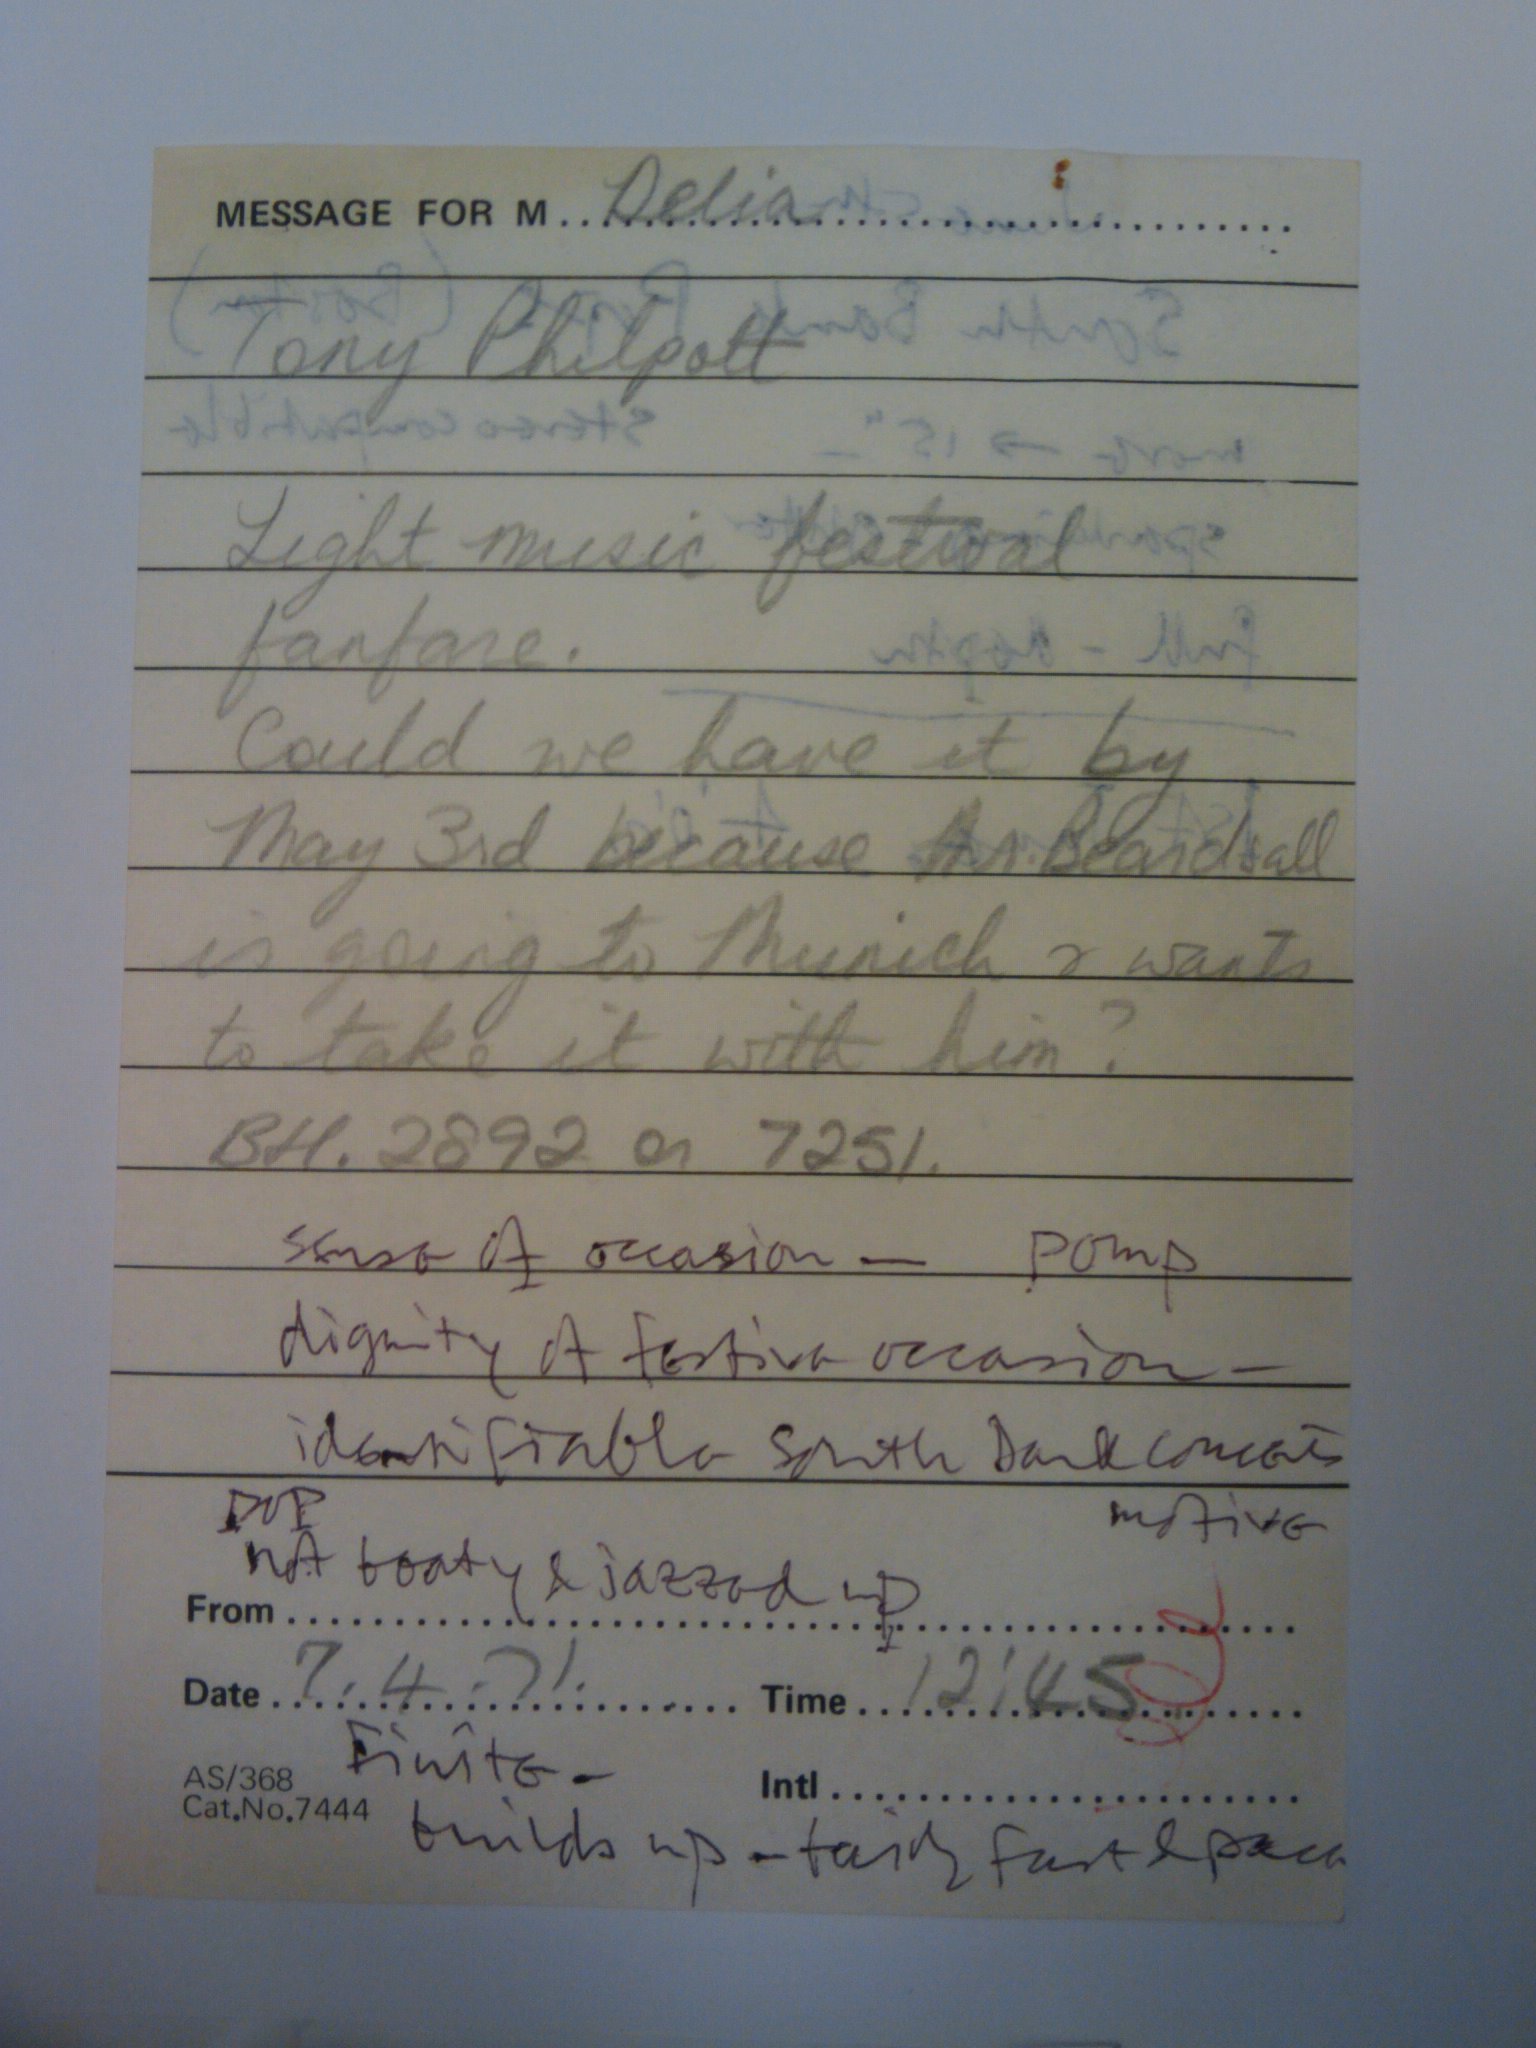 MESSAGE FOR M Delia
Tony Philpott
Light music festival
fanfare.
Could we have it by
May 3rd because Mr. Beardsall
is going to Munich & wants
to take it with him?
BH. 2892 or 7251.
sense of occasion — pomp
dignity of festive occasion —
identifiable South Bank concerts
POP motive
not beaty & jazzed up
From
Date 7.4.71. Time 12.45
Finite -
AS/368 Intl
Cat.No.7444
builds up - fairly fast &